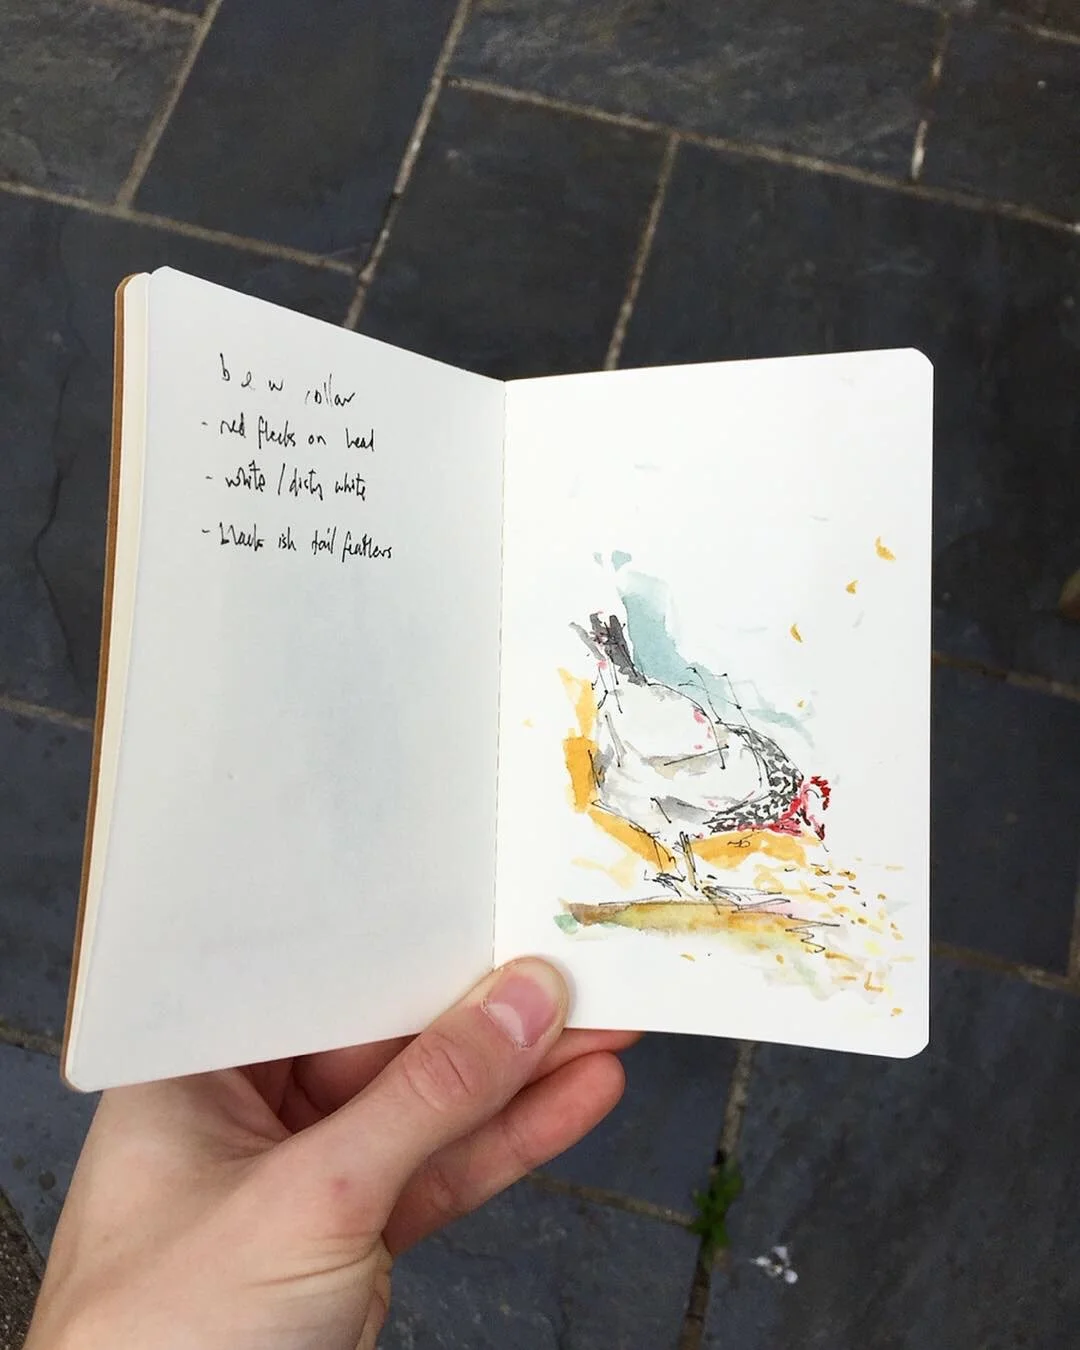 b e w collar
- red flecks on head
- white / dirty white
- black ish tail feathers